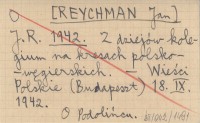 [REYCHMAN Jan]
J.R. 1942. Z dziejów kole-
gium na kresach polsko-
węgierskich. - Wieści
Polskie (Budapeszt) 18. IX.
1942.
O Podolińcu.